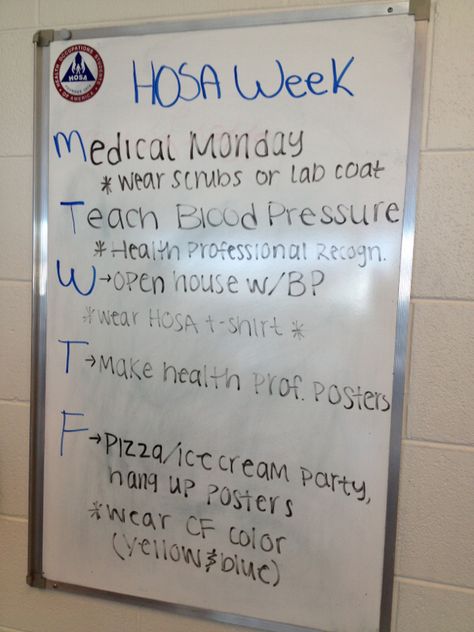 HEALTH OCCUPATIONS STUDENTS OF AMERICA
HOSA
HOSA Week
Medical Monday
*wear scrubs or lab coat
Teach Blood Pressure
*Health Professional Recogn.
W→open house w/BP
*wear HOSA t-shirt*
T→Make health prof. posters
F→Pizza/ice cream party,
hang up posters
*wear CF color
(yellow&blue)